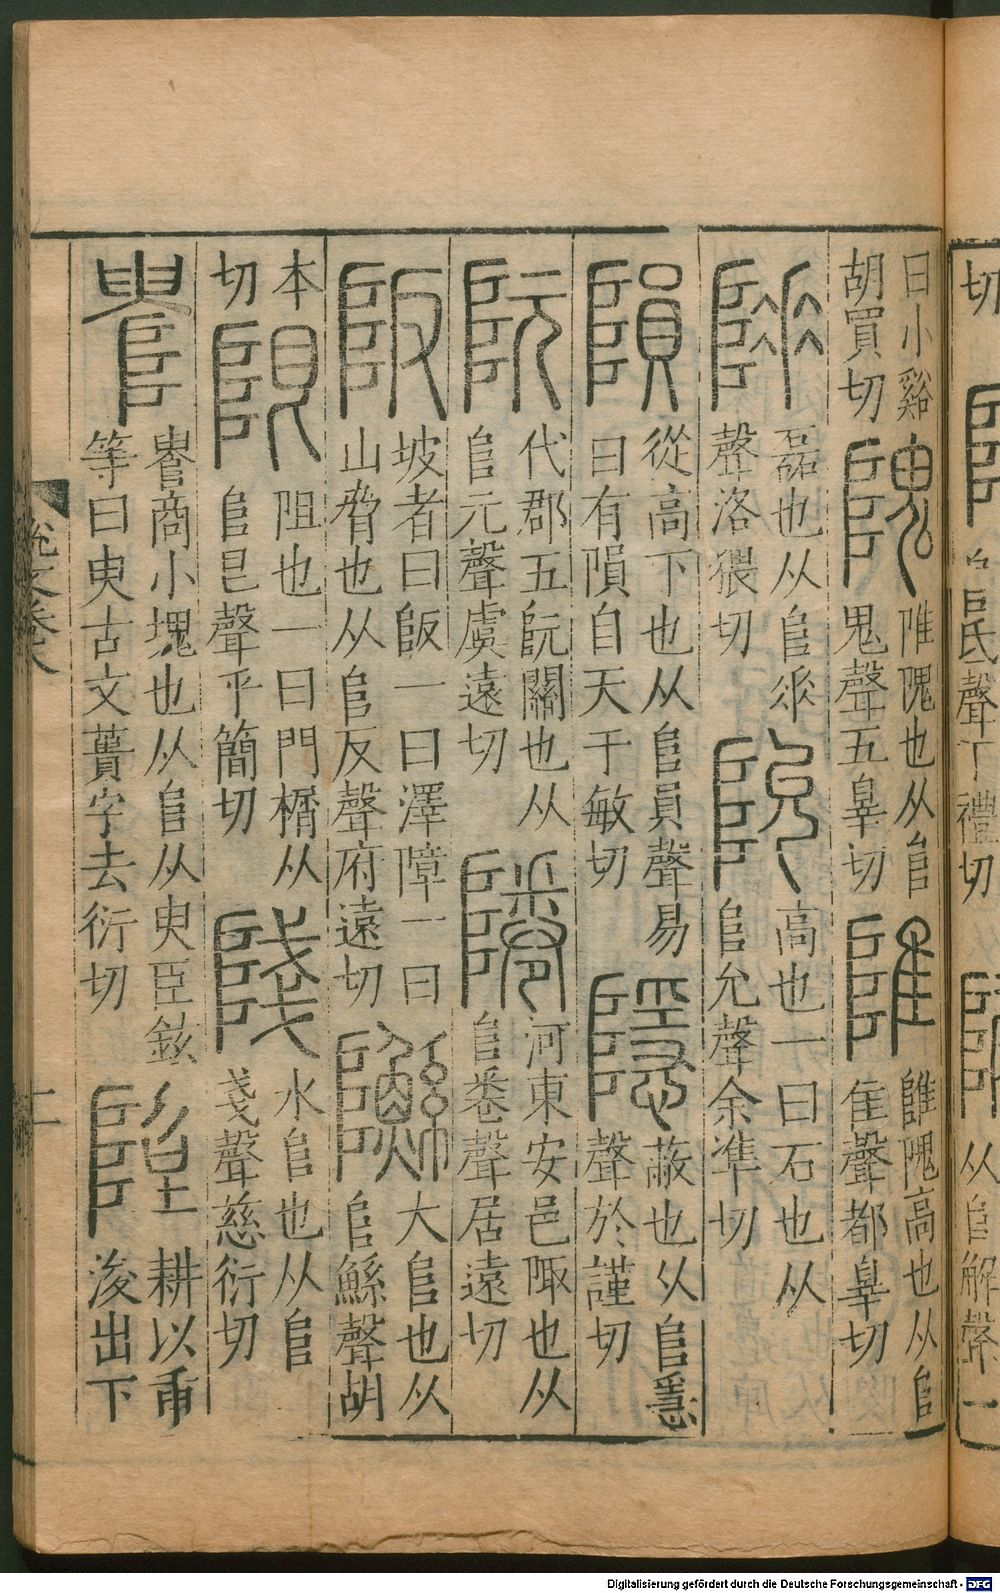 切
氐聲丁禮切
从𨸏解聲一
曰小谿
胡買切
隗
陮隗也从𨸏
鬼聲五辠切
陮
陮隗高也从𨸏
隹聲都辠切
磊也从𨸏𠂹
聲洛猥切
阭
高也一曰石也从
𨸏允聲余準切
隕
從高下也从𨸏員聲易
曰有隕自天于敏切
隱
蔽也从𨸏㥯
聲於謹切
阮
代郡五阮關也从
𨸏元聲虞遠切
河東安邑陬也从
𨸏卷聲居遠切
阪
坡者曰阪一曰澤障一曰
山脅也从𨸏反聲府遠切
大𨸏也从
𨸏鯀聲胡
本
切
限
阻也一曰門榍从
𨸏皀聲乎簡切
水𨸏也从𨸏
戔聲慈衍切
商小塊也从𨸏从臾臣鉉
等曰臾古文蕢字去衍切
耕以臿
浚出下
說文卷八
二
Digitalisierung gefördert durch die Deutsche Forschungsgemeinschaft - DFG